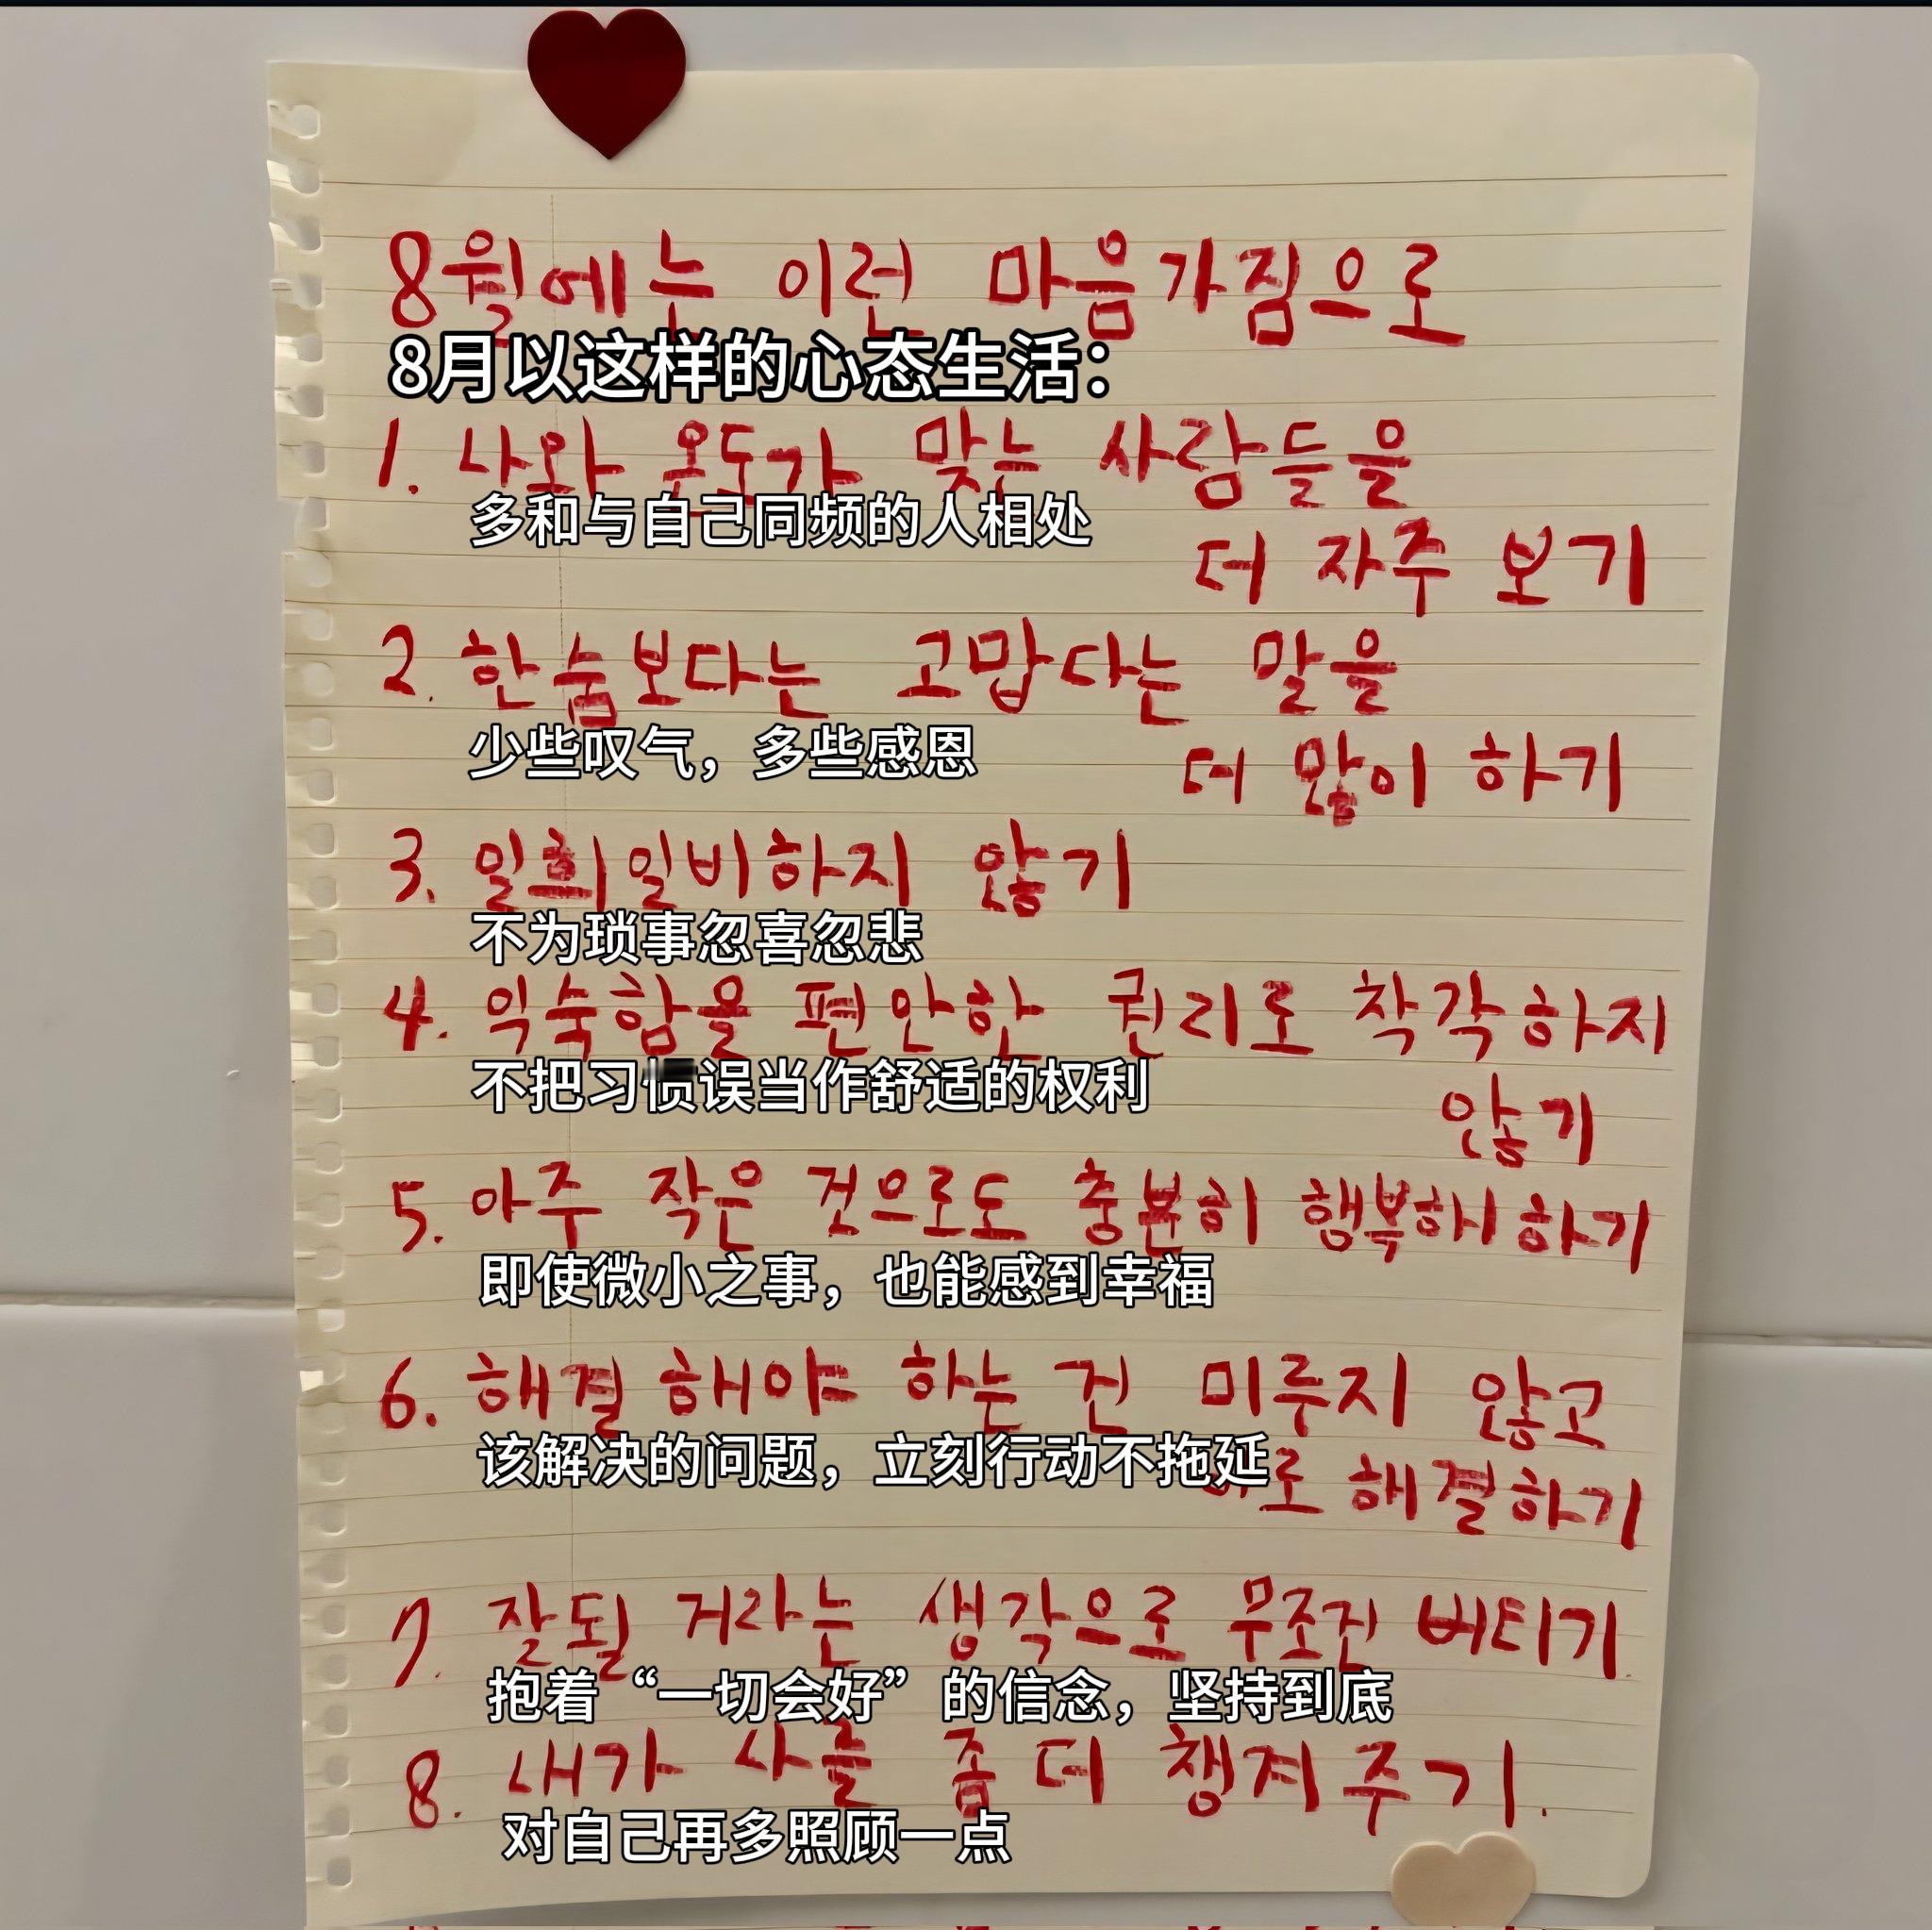 8월에는 이런 마음가짐으로
8月以这样的心态生活：
1. 나와 온도가 맞는 사람들을
多和与自己同频的人相处
더 자주 보기
2. 한숨보다는 고맙다는 말을
少些叹气，多些感恩
더 많이 하기
3. 일희일비하지 않기
不为琐事忽喜忽悲
4. 익숙함을 편안한 권리로 착각하지
不把习惯误当作舒适的权利
않기
5. 아주 작은 것으로도 충분히 행복해하기
即使微小之事，也能感到幸福
6. 해결해야 하는 건 미루지 않고
该解决的问题，立刻行动不拖延
해결하기
7. 잘될 거라는 생각으로 무조건 버티기.
抱着“一切会好”的信念，坚持到底
8. 내가 좀 더 챙겨주기.
对自己再多照顾一点